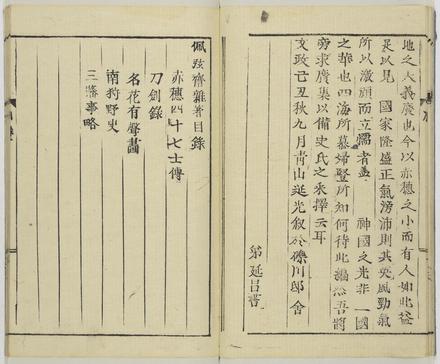 地之大義廣也今以赤穗之小而有人如此益
足以見　國家隆盛正氣滂沛則其英風勁氣
所以激頑而立懦者盖　神國之光非一國
之華也四海所慕婦竪所知何待此編然吾將
旁求廣集以備史氏之采擇云耳
文政己丑秋九月青山延光叙於礫川邸舍
弟延昌書
佩弦齋雜著目錄
赤穗四十七士傳
刀劍錄
名花有聲畫
南狩野史
三藩事略